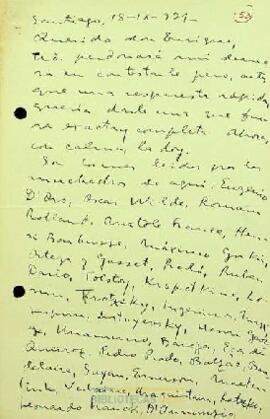 Santiago, 18-IX-921.
52
Querido don Enrique,
Ud. perdonará mi demo
ra en contestarle pero, antes
que una respuesta rápida
quería darle una que fue
ra exacta y completa. Ahora,
con calma, la doy.
Son los más leidos por los
muchachos de aquí: Eugenio
D'Ors, Oscar Wilde, Romain
Rolland, Anatole France, Hen
ri Barbusse, Máximo Gorki,
Ortega y Gasset, Rodó, Rubén
Darío, Tolstoy, Kropotkine, Le
nin, Trotzky, Ingenieros,
Dostoyewsky, Henri Geor
ge, Unamuno, Baroja, Eça de
Queiroz, Pedro Prado, Balzac, Bau
delaire, Emerson, Maeter
linck, Verlaine,
Leonardo Franck, D'Annunzio
BIBLIOTECA